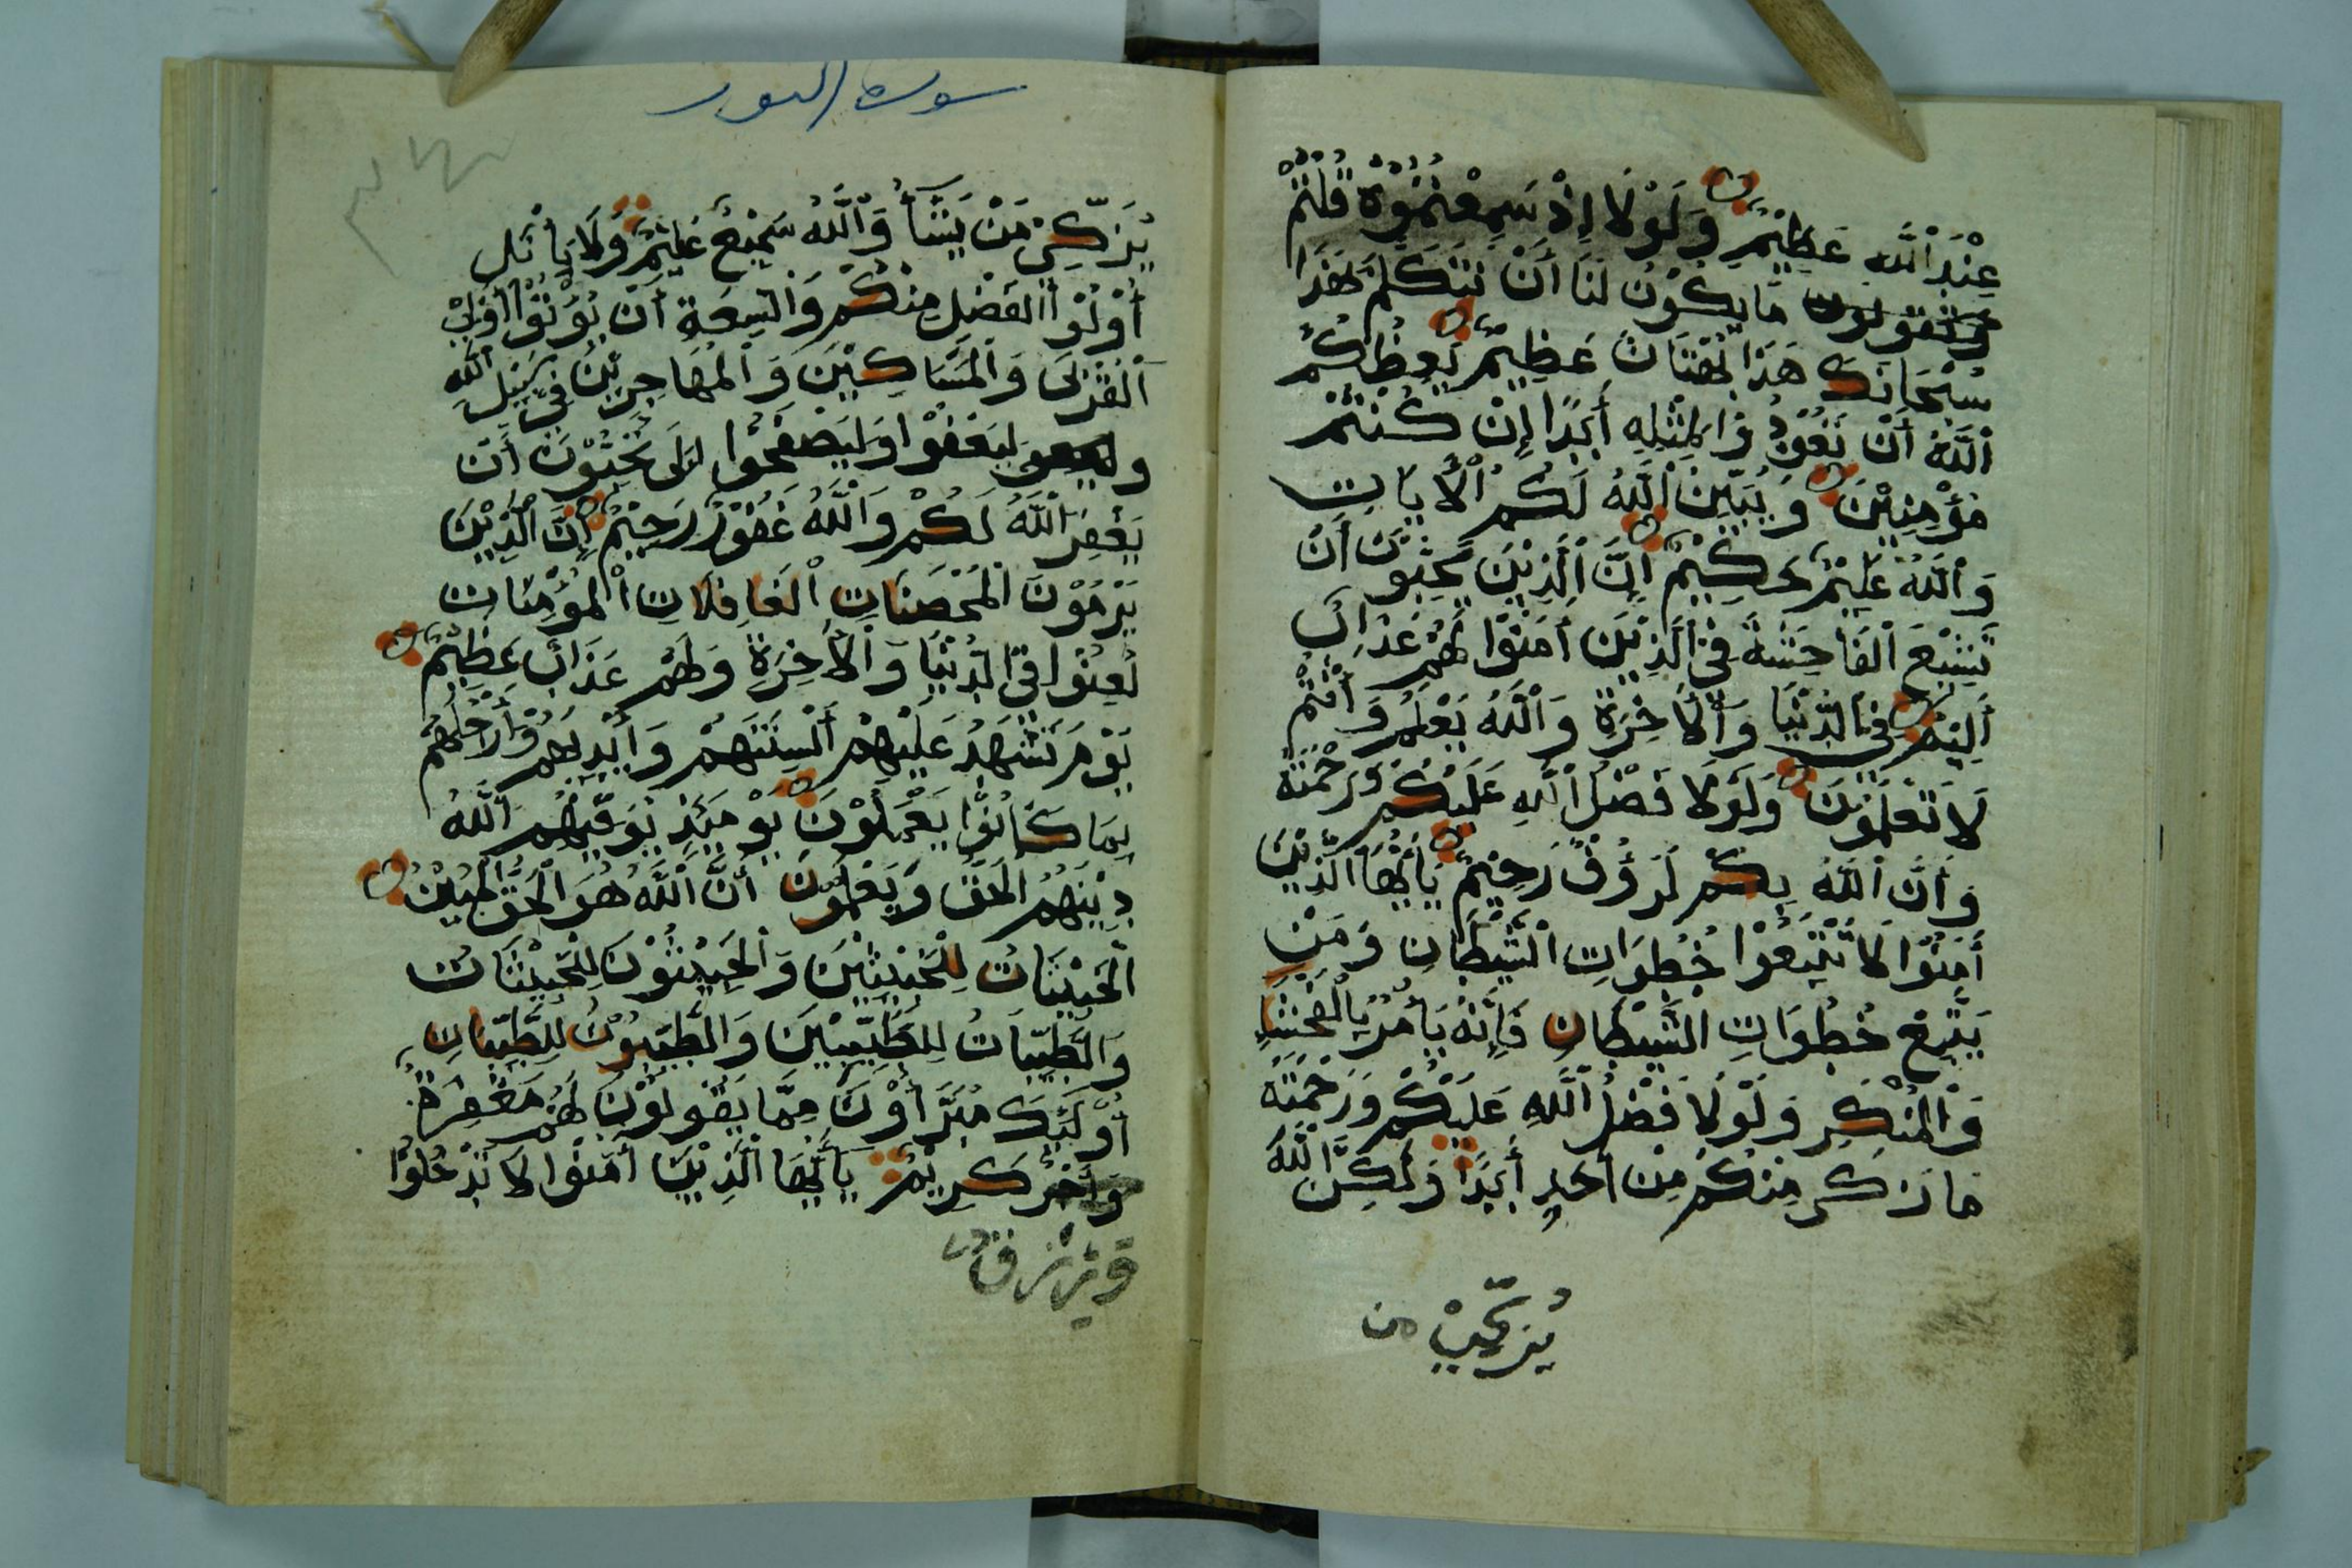 عِنْدَ اللَّهِ عَظِيْمٌ وَلَوْلَا إِذْ سَمِعْتُمُوْهُ قُلْتُمْ
مَا يَكُوْنُ لَنَا أَنْ نَتَكَلَّمَ بِهَذَا
سُبْحَانَكَ هَذَا بُهْتَانٌ عَظِيْمٌ يَعِظُكُمُ
اللَّهُ أَنْ تَعُوْدُوْا لِمِثْلِهِ أَبَدًا إِنْ كُنْتُمْ
مُؤْمِنِيْنَ وَيُبَيِّنُ اللَّهُ لَكُمُ الْأَيَاتِ
وَاللَّهُ عَلِيْمٌ حَكِيْمٌ إِنَّ الَّذِيْنَ يُحِبُّوْنَ أَنْ
تَشِيْعَ الْفَاحِشَةُ فِي الَّذِيْنَ أَمَنُوْا لَهُمْ عَذَابٌ
أَلِيْمٌ فِي الدُّنْيَا وَالْأَخِرَةِ وَاللَّهُ يَعْلَمُ وَأَنْتُمْ
لَا تَعْلَمُوْنَ وَلَوْلَا فَضْلُ اللَّهِ عَلَيْكُمْ وَرَحْمَتُهُ
وَأَنَّ اللَّهَ بِكُمْ لَرَؤُفٌ رَحِيْمٌ يَا أَيُّهَا الَّذِيْنَ
أَمَنُوْا لَا تَتَّبِعُوْا خُطُوَاتِ الشَّيْطَانِ وَمَنْ
يَتَّبِعْ خُطُوَاتِ الشَّيْطَانِ فَإِنَّهُ يَأْمُرُ بِالْفَحْشَاءِ
وَالْمُنْكَرِ وَلَوْلَا فَضْلُ اللَّهِ عَلَيْكُمْ وَرَحْمَتُهُ
مَا زَكَى مِنْكُمْ مِنْ أَحَدٍ أَبَدًا وَلَكِنَّ اللَّهَ
يُزَكِّيْ من
سورة النور
يُزَكِّيْ مَنْ يَشَآءُ وَاللَّهُ سَمِيْعٌ عَلِيْمٌ وَلَا يَأْتَلِ
أُوْلُوْا الْفَضْلِ مِنْكُمْ وَالسَّعَةِ أَنْ يُؤْتُوْا أُوْلِيْ
الْقُرْبَى وَالْمَسَاكِيْنَ وَالْمُهَاجِرِيْنَ فِيْ سَبِيْلِ اللَّهِ
لِيَعْفُوْا وَلْيَصْفَحُوْا أَلَا تُحِبُّوْنَ أَنْ
يَغْفِرَ اللَّهُ لَكُمْ وَاللَّهُ غَفُوْرٌ رَحِيْمٌ إِنَّ الَّذِيْنَ
يَرْمُوْنَ الْمُحْصَنَاتِ الْغَافِلَاتِ الْمُؤْمِنَاتِ
لُعِنُوْا فِي الدُّنْيَا وَالْأَخِرَةِ وَلَهُمْ عَذَابٌ عَظِيْمٌ
يَوْمَ تَشْهَدُ عَلَيْهِمْ أَلْسِنَتُهُمْ وَأَيْدِيْهِمْ وَأَرْجُلُهُمْ
بِمَا كَانُوْا يَعْمَلُوْنَ يَوْمَئِذٍ يُوَفِّيْهِمُ اللَّهُ
دِيْنَهُمُ الْحَقَّ وَيَعْلَمُوْنَ أَنَّ اللَّهَ هُوَ الْحَقُّ الْمُبِيْنُ
الْخَبِيْثَاتُ لِلْخَبِيْثِيْنَ وَالْخَبِيْثُوْنَ لِلْخَبِيْثَاتِ
وَالطَّيِّبَاتُ لِلطَّيِّبِيْنَ وَالطَّيِّبُوْنَ لِلطَّيِّبَاتِ
أُوْلَئِكَ مُبَرَّأُوْنَ مِمَّا يَقُوْلُوْنَ لَهُمْ مَغْفِرَةٌ
كَرِيْمٌ يَا أَيُّهَا الَّذِيْنَ أَمَنُوْا لَا تَدْخُلُوْا